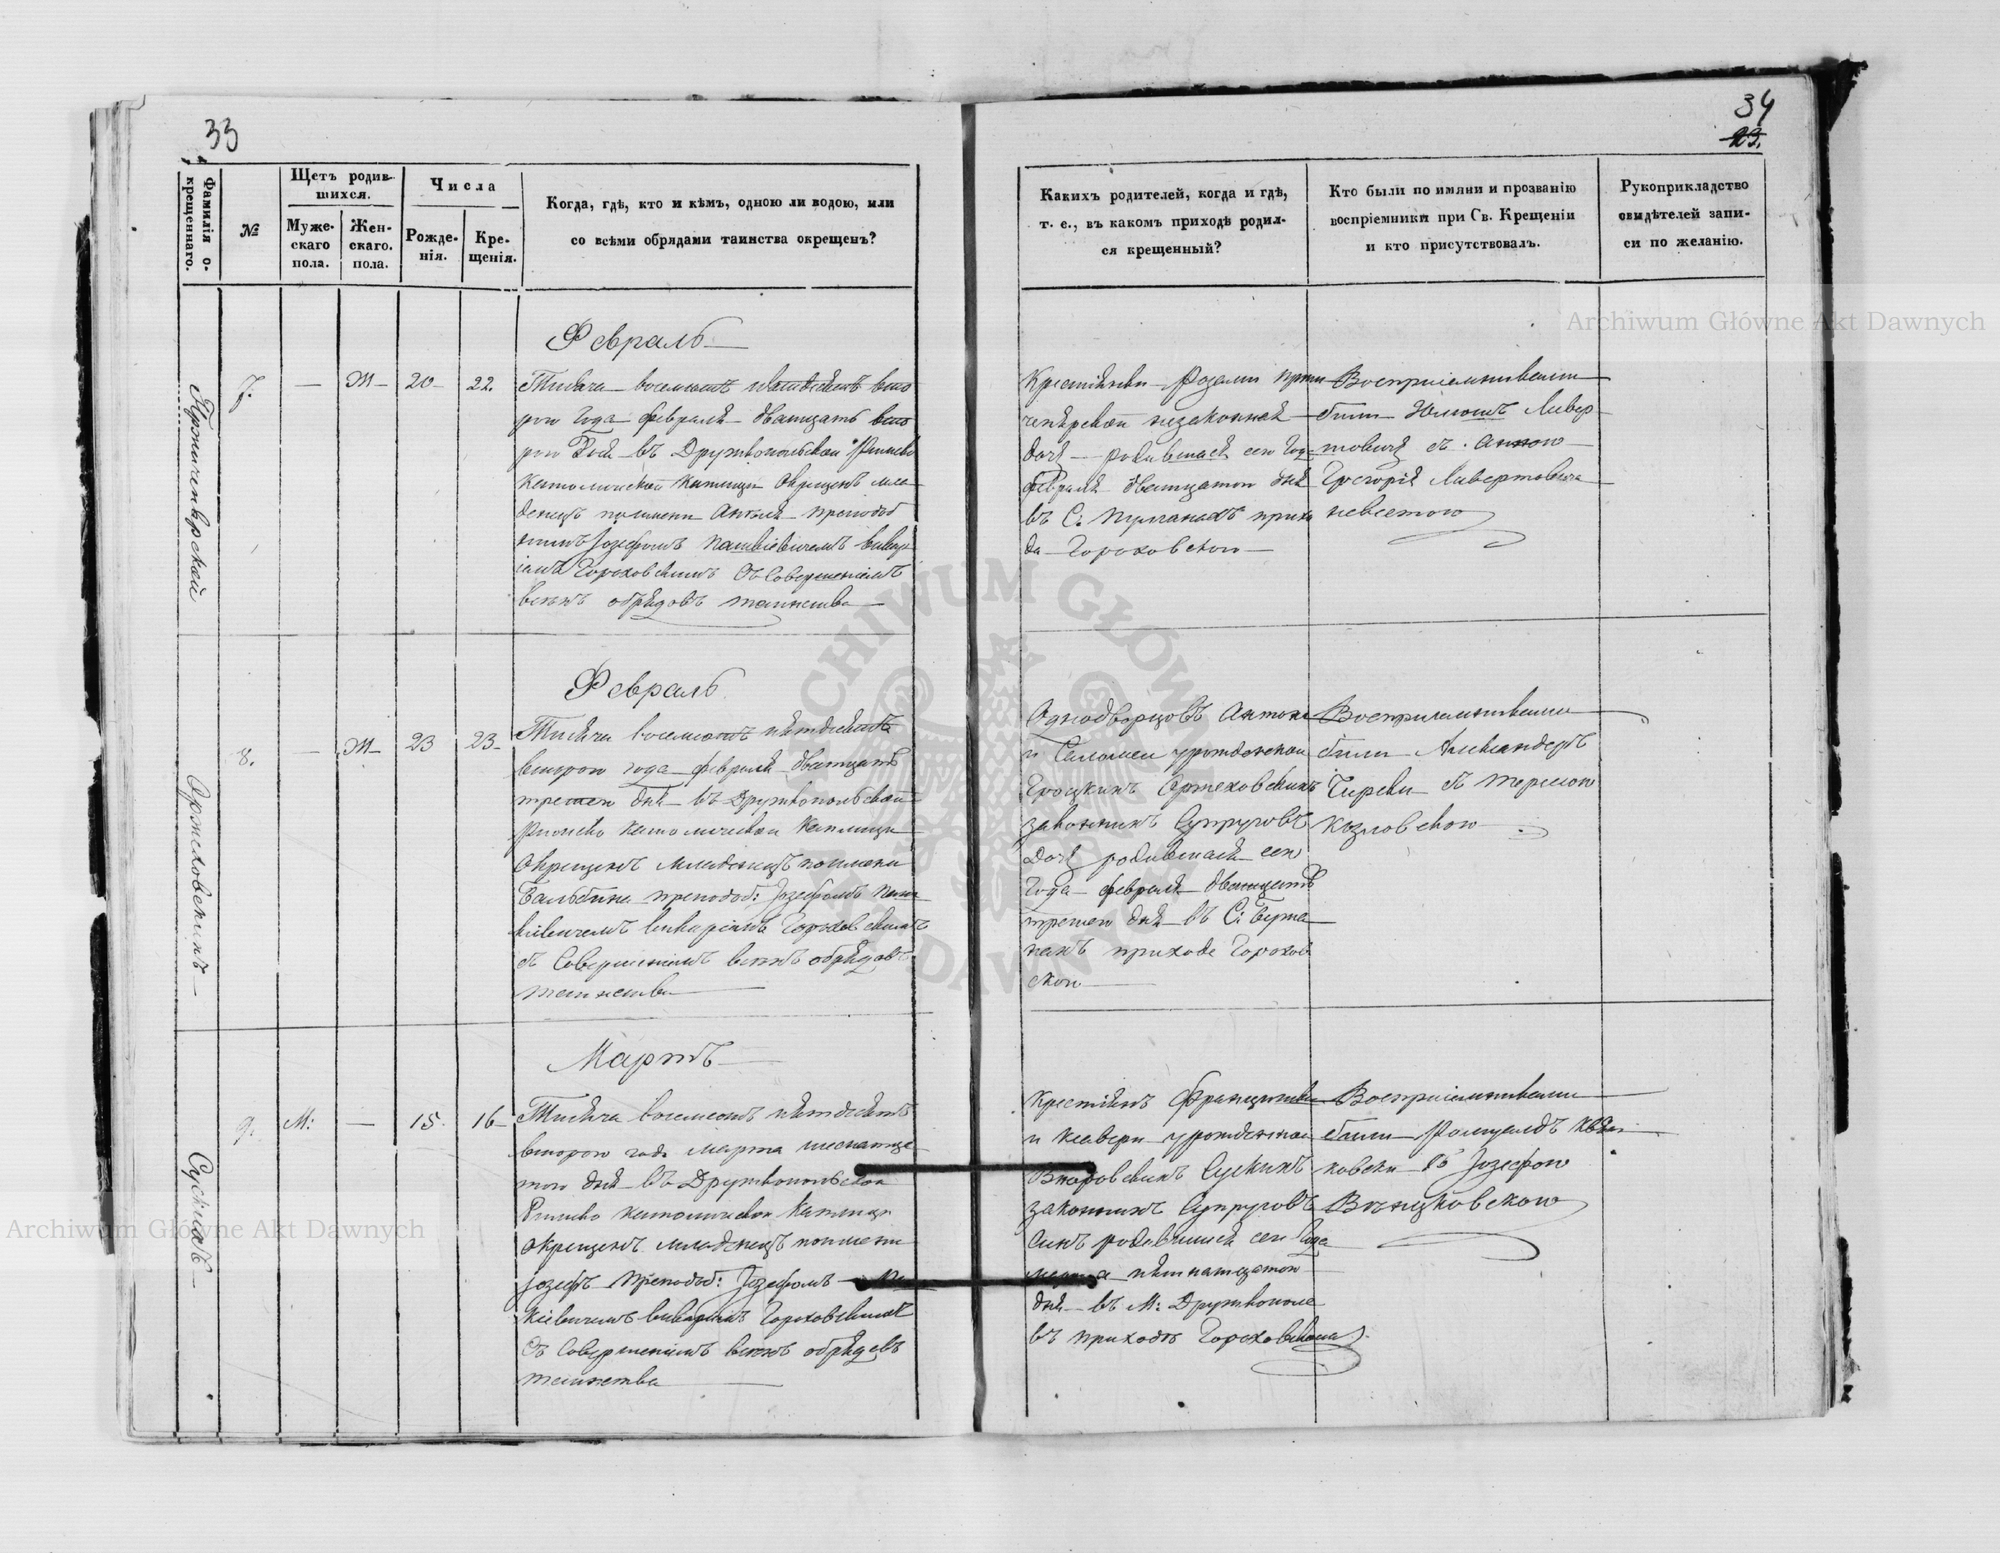 33
Фамилія о-
крещеннаго.
№
Щетъ родив-
шихся.
Муже-
скаго
пола.
Жен-
скаго.
пола.
Числа
Рожде-
нія.
Кре-
щенія.
Когда, гдѣ, кто и кѣмъ, одною ли водою, или
со всѣми обрядами таинства окрещенъ?
Февраль
7.
—
Ж
20
22.
Тисяча восемсотъ
рого года февраля дватцать вто
рого въ Дружкопольской Римско
Католической Каплици Окрещенъ мла
денецъ поимени преподоб
Іозефомъ викар
Гороховскимъ Съ Совершеніемъ
всехъ обрядовъ таинства
Февраль
8.
—
Ж
23
23
Тисяча восемсотъ пятдесятъ
второго года февраля двятцать
третего дня въ Дружкопольской
Римско католической Каплици
Окрещенъ младенецъ поимени
Бальбина преподоб: Іозефомъ
викаріямъ Гороховскимъ
съ Совершеніемъ всехъ обрядовъ
таинства
Сускихъ
Мартъ
9.
М:
—
15
16
Тисяча восемсотъ пятдесятъ
второго года марта шеснатца
того дня въ Дружкопольской
Римско католической Каплици
окрещенъ младенецъ поимени
Іозефъ преподоб: Іозефомъ
викаріямъ Гороховскимъ
Съ Совершеніемъ всехъ обрядовъ
таинства
34
23.
Какихъ родителей, когда и гдѣ,
т. е., въ какомъ приходѣ родил-
ся крещенный?
Кто были по имяни и прозванію
воспріемники при Св. Крещеніи
и кто присутствовалъ.
Рукоприкладство
свидѣтелей запи-
си по желанію.
Крестянки Розалии
незаконная
родившаяся сего год
февраля двятцатого дня
въ С. прихо
да Гороховского
Восприемниками
были Ливер
товичъ съ Анною
Григорія Ливертовича
невестою
Однодворцовъ Антона
и Саломеи урожденной
законнихъ Супруговъ
родившаяся сего
года февраля двятцать
третего дня въ С:
приходе Горохов
ском
Восприемниками
били Александеръ
съ Терезою
Козловскою
Крестянъ Францишка
и Ксавери урожденной
Сускихъ
законнихъ Супруговъ
Синъ родившийся сего года
марта пятнатцатого
дня въ М: Дружкополе
въ приходе Гороховском
Восприемниками
били Ромуалдъ
съ Іозефою
Archiwum Główne Akt Dawnych
Archiwum Główne Akt Dawnych
ARCHIWUM GŁÓWNE AKT DAWNYCH